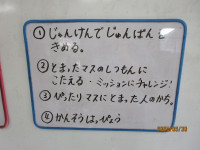 ① じゃんけんでじゅんばんを
きめる。
② とまったマスのしつもんに
こたえる・ミッションにチャレンジ!
③ ぴったりマスにとまった人のかち。
④ かんそうはっぴょう